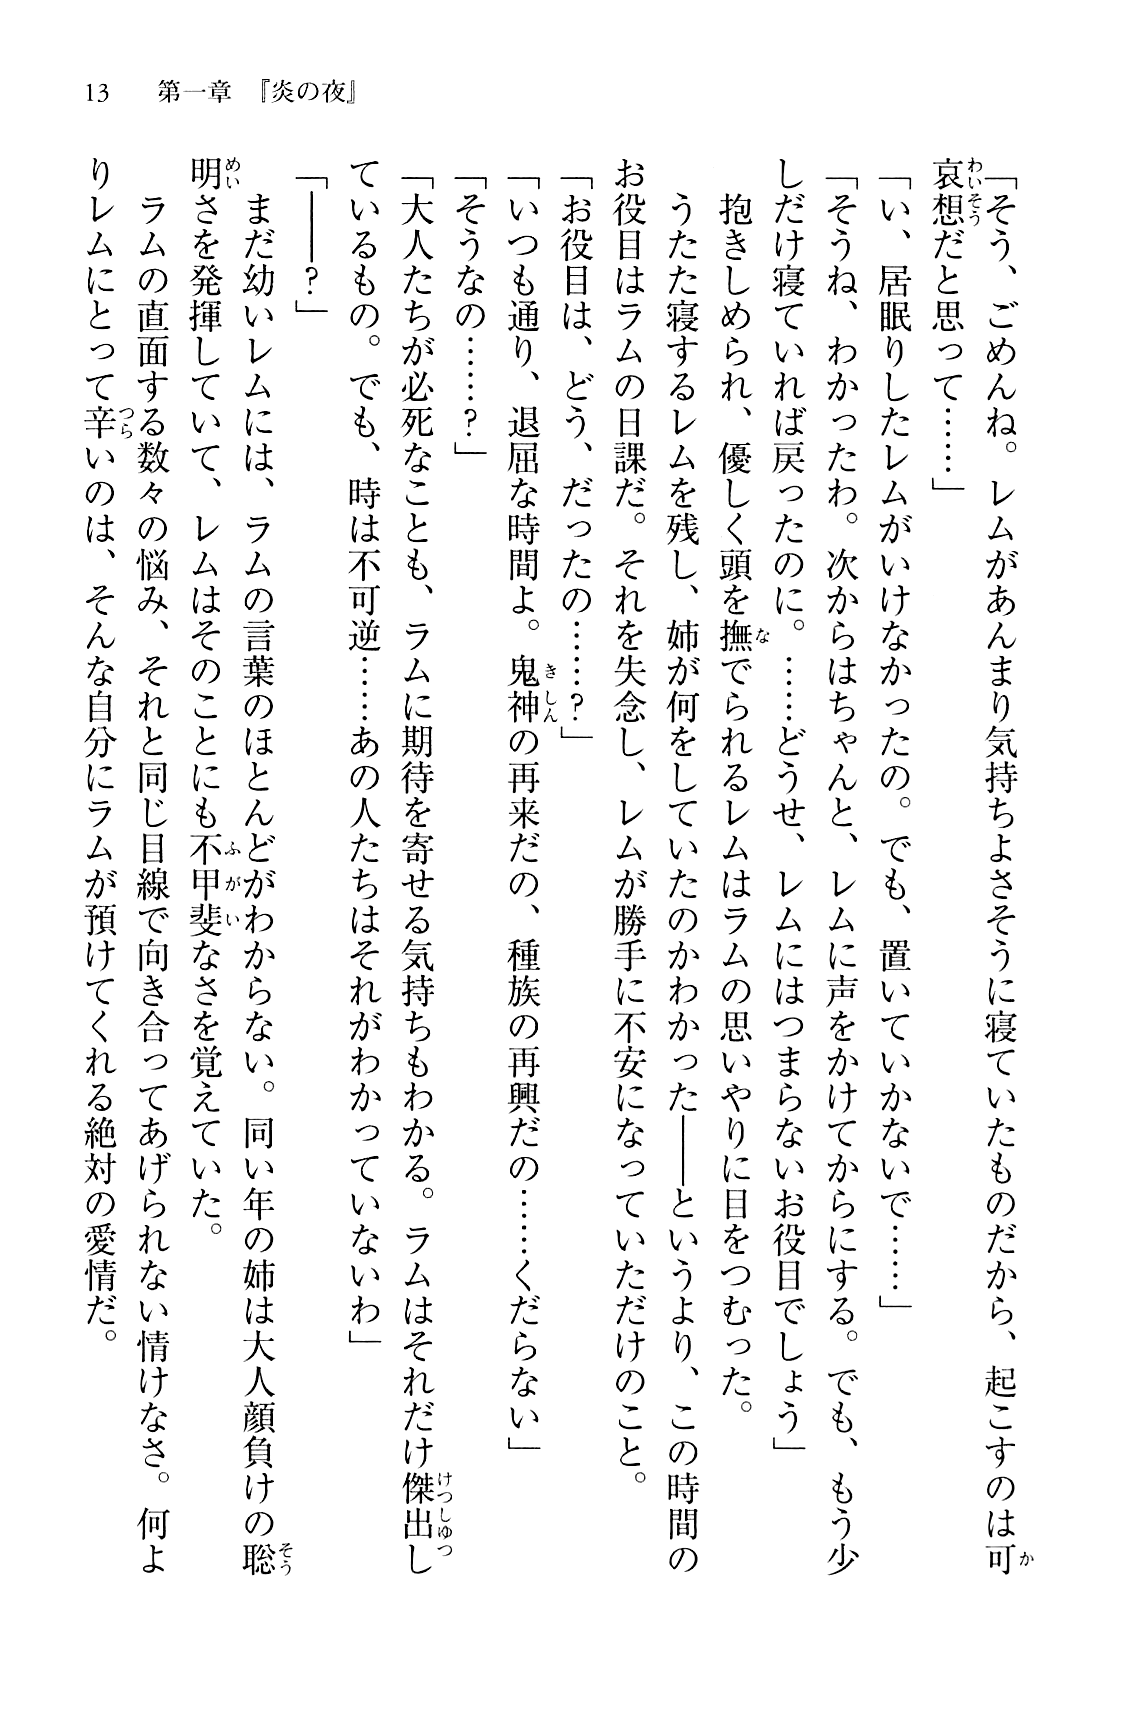 13　第一章　『炎の夜』
「そう、ごめんね。レムがあんまり気持ちよさそうに寝ていたものだから、起こすのは可
哀想だと思って……」
「い、居眠りしたレムがいけなかったの。でも、置いていかないで……」
「そうね、わかったわ。次からはちゃんと、レムに声をかけてからにする。でも、もう少
しだけ寝ていれば戻ったのに。……どうせ、レムにはつまらないお役目でしょう」
　抱きしめられ、優しく頭を撫でられるレムはラムの思いやりに目をつむった。
　うたた寝するレムを残し、姉が何をしていたのかわかった――というより、この時間の
お役目はラムの日課だ。それを失念し、レムが勝手に不安になっていただけのこと。
「お役目は、どう、だったの……？」
「いつも通り、退屈な時間よ。鬼神の再来だの、種族の再興だの……くだらない」
「そうなの……？」
「大人たちが必死なことも、ラムに期待を寄せる気持ちもわかる。ラムはそれだけ傑出し
ているもの。でも、時は不可逆……あの人たちはそれがわかっていないわ」
「――？」
　まだ幼いレムには、ラムの言葉のほとんどがわからない。同い年の姉は大人顔負けの聡
明さを発揮していて、レムはそのことにも不甲斐なさを覚えていた。
　ラムの直面する数々の悩み、それと同じ目線で向き合ってあげられない情けなさ。何よ
りレムにとって辛いのは、そんな自分にラムが預けてくれる絶対の愛情だ。